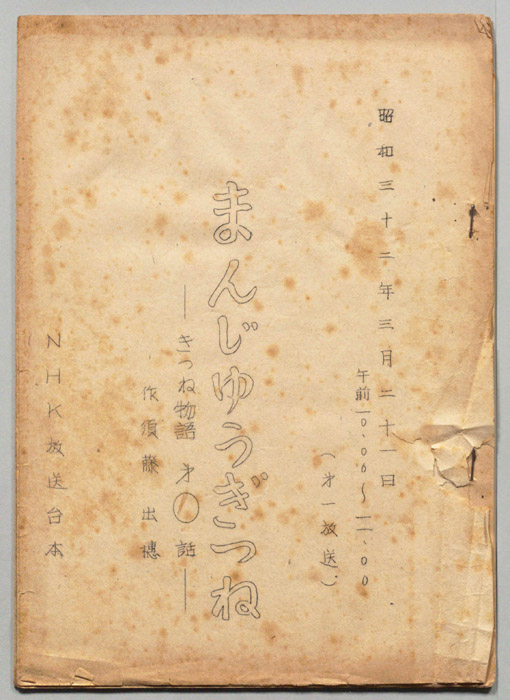 昭和三十三年三月二十一日
午前一〇・〇〇〜一一・〇〇
（才一放送）
まんじゅうぎつね
――きつね物語 才〇話――
作 須藤出穂
NHK放送台本